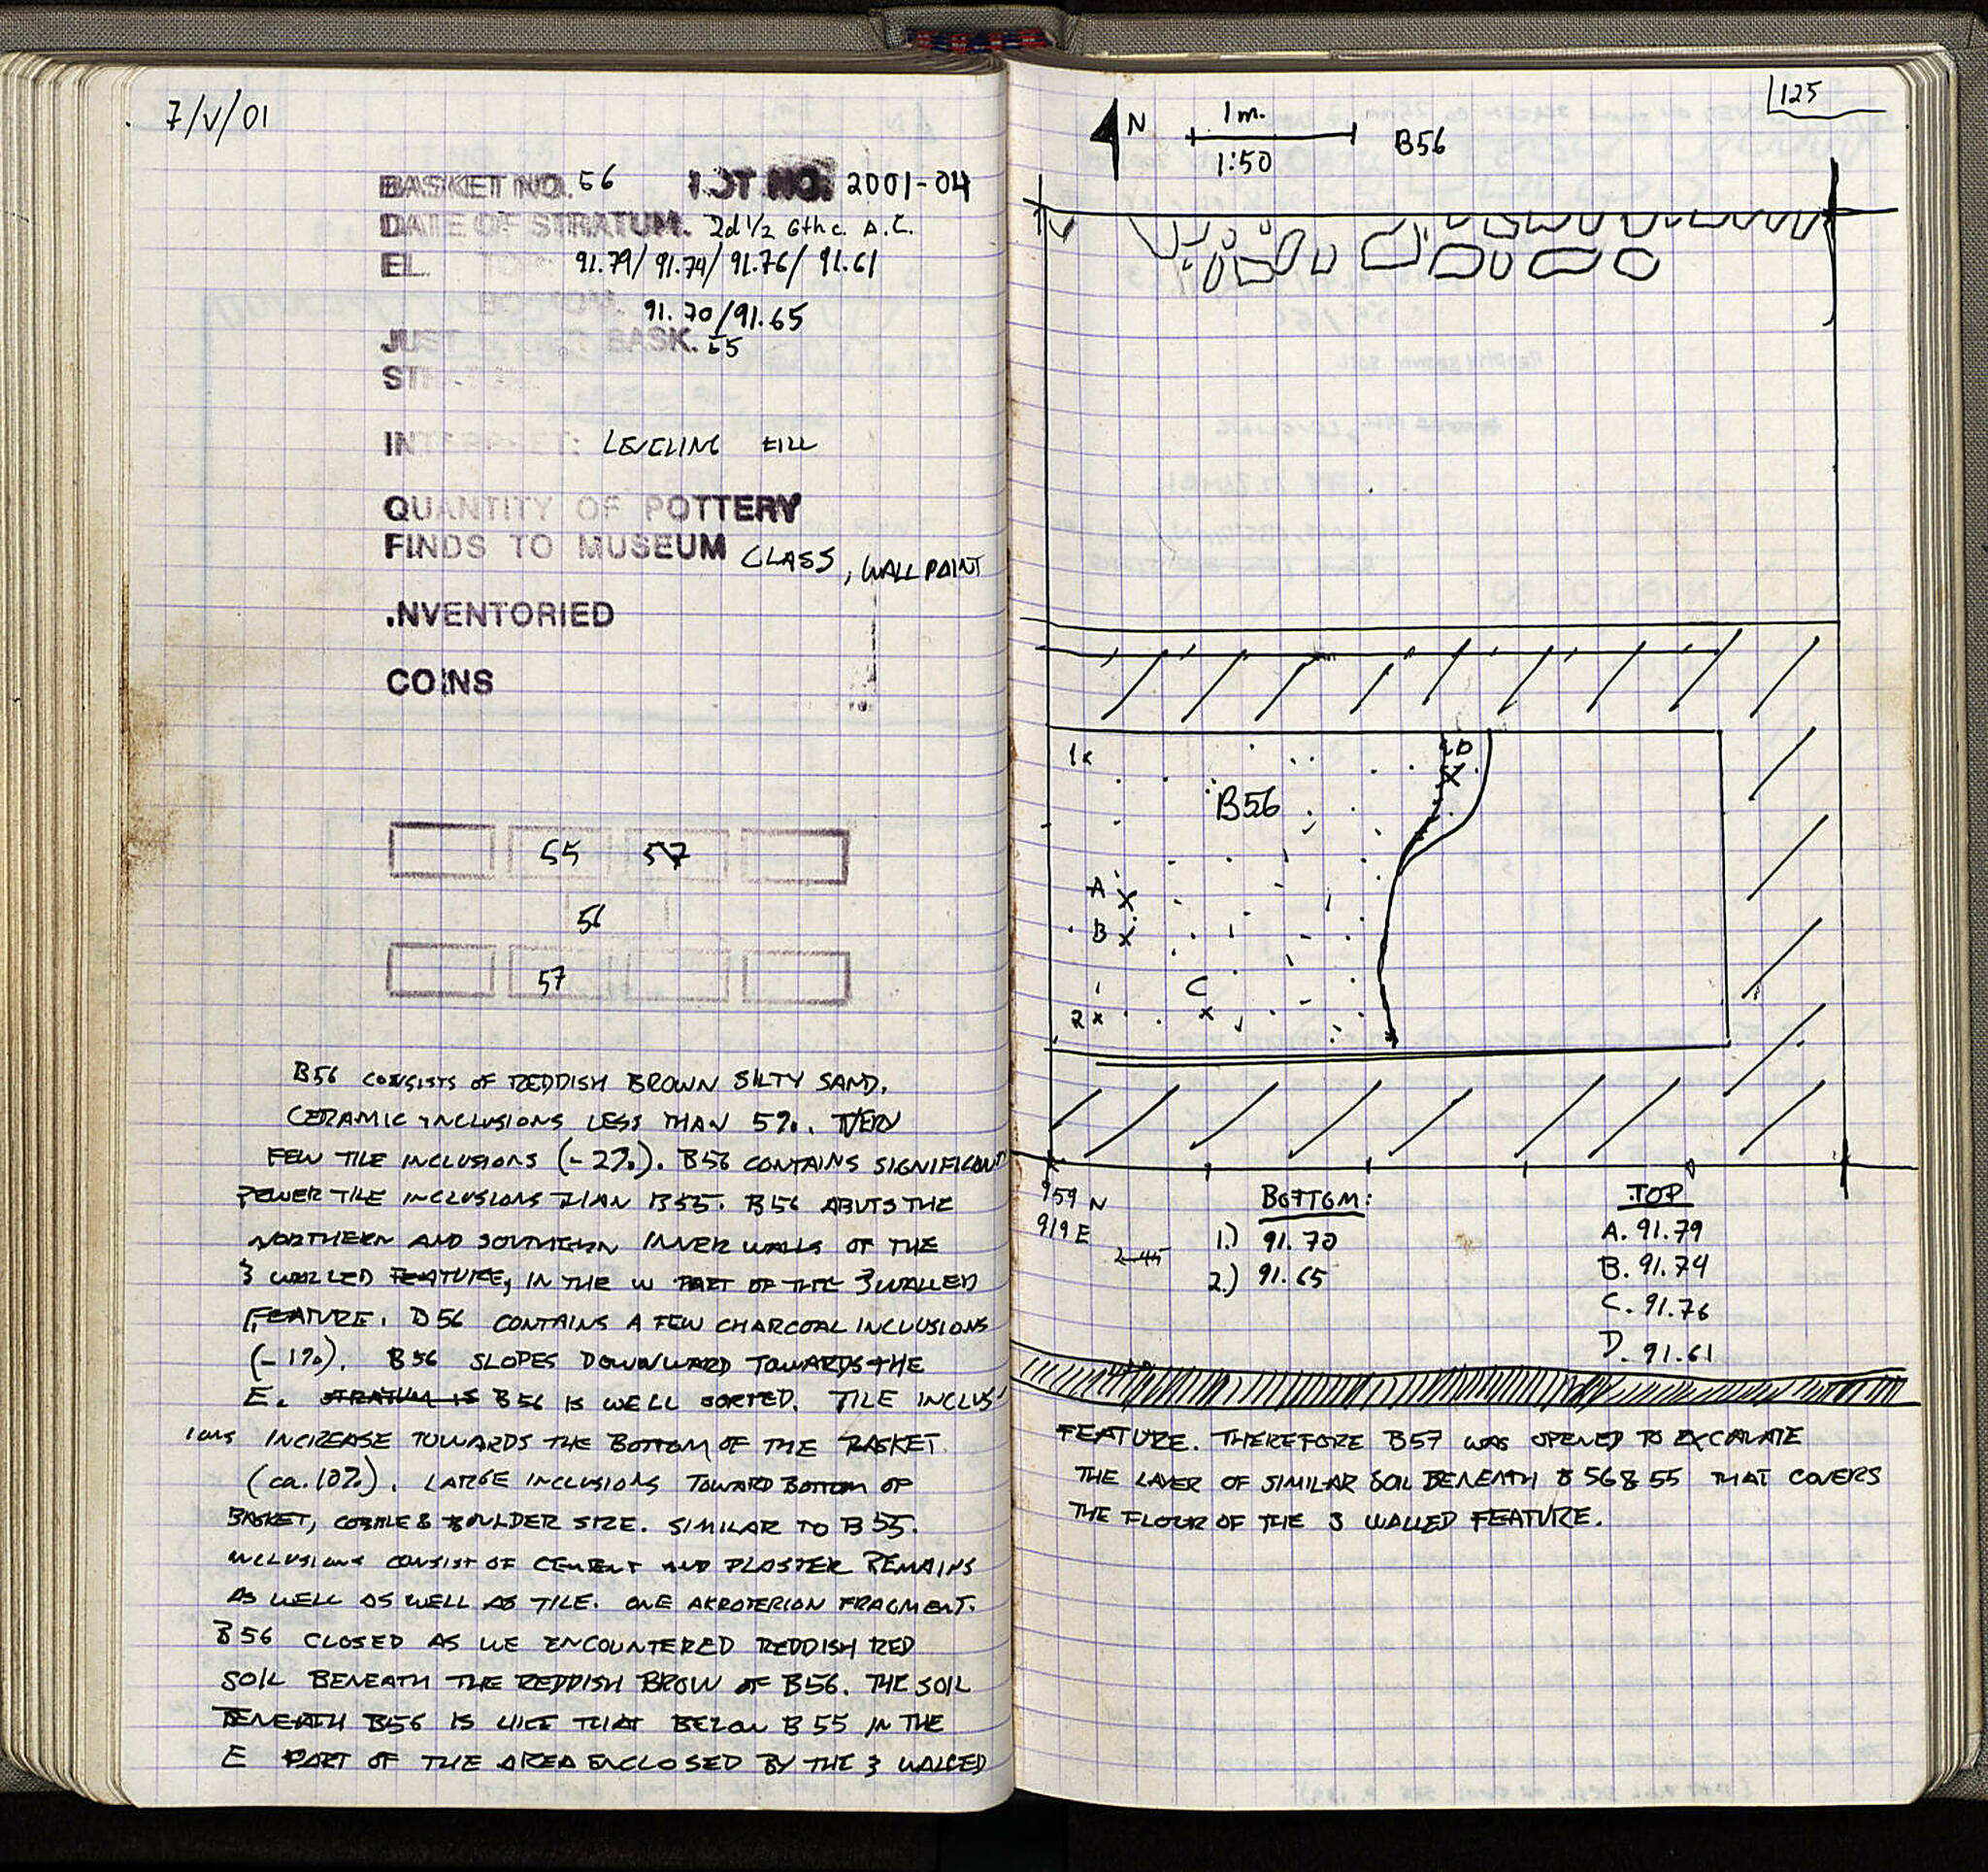 7/V/01
BASKET NO. 56 LOT NO. 2001-04
DATE OF STRATUM. 2d 1/2 6th c. A.C.
EL. TOP: 91.79/ 91.74/ 91.76/ 91.61
BOTTOM. 91.70/91.65
JUST BASK. 55
INTERPRET: LEVELING FILL
QUANTITY OF POTTERY
FINDS TO MUSEUM GLASS, WALL PAINT
.NVENTORIED
COINS
55 57
56
57
B56 CONSISTS OF REDDISH BROWN SILTY SAND.
CERAMIC INCLUSIONS LESS THAN 5%. VERY
FEW TILE INCLUSIONS (-2%). B56 CONTAINS SIGNIFICANT
FEWER TILE INCLUSIONS THAN B55. B56 ABUTS THE
NORTHERN AND SOUTHERN INNER WALLS OF THE
3 WALLED FEATURE, IN THE W PART OF THE 3 WALLED
FEATURE. B56 CONTAINS A FEW CHARCOAL INCLUSIONS
(-1%). B56 SLOPES DOWNWARD TOWARDS THE
E. STRATUM IS B56 IS WELL SORTED. TILE INCLUS-
IONS INCREASE TOWARDS THE BOTTOM OF THE BASKET
(ca. 10%). LARGE INCLUSIONS TOWARD BOTTOM OF
BASKET, COBBLE & BOULDER SIZE. SIMILAR TO B55.
INCLUSIONS CONSIST OF CEMENT AND PLASTER REMAINS
AS WELL AS WELL AS TILE. ONE AKROTERION FRAGMENT.
B56 CLOSED AS WE ENCOUNTERED REDDISH RED
SOIL BENEATH THE REDDISH BROW OF B56. THE SOIL
BENEATH B56 IS LIKE THAT BELOW B55 IN THE
E PART OF THE AREA ENCLOSED BY THE 3 WALLED
125
N 1m. B56
1:50
1x
D
X
B56
A X
B X
C
x
2x
959 N
919 E
2.45
BOTTOM:
1.) 91.70
2.) 91.65
TOP
A. 91.79
B. 91.74
C. 91.76
D. 91.61
FEATURE. THEREFORE B57 WAS OPENED TO EXCAVATE
THE LAYER OF SIMILAR SOIL BENEATH B56 & 55 THAT COVERS
THE FLOUR OF THE 3 WALLED FEATURE.